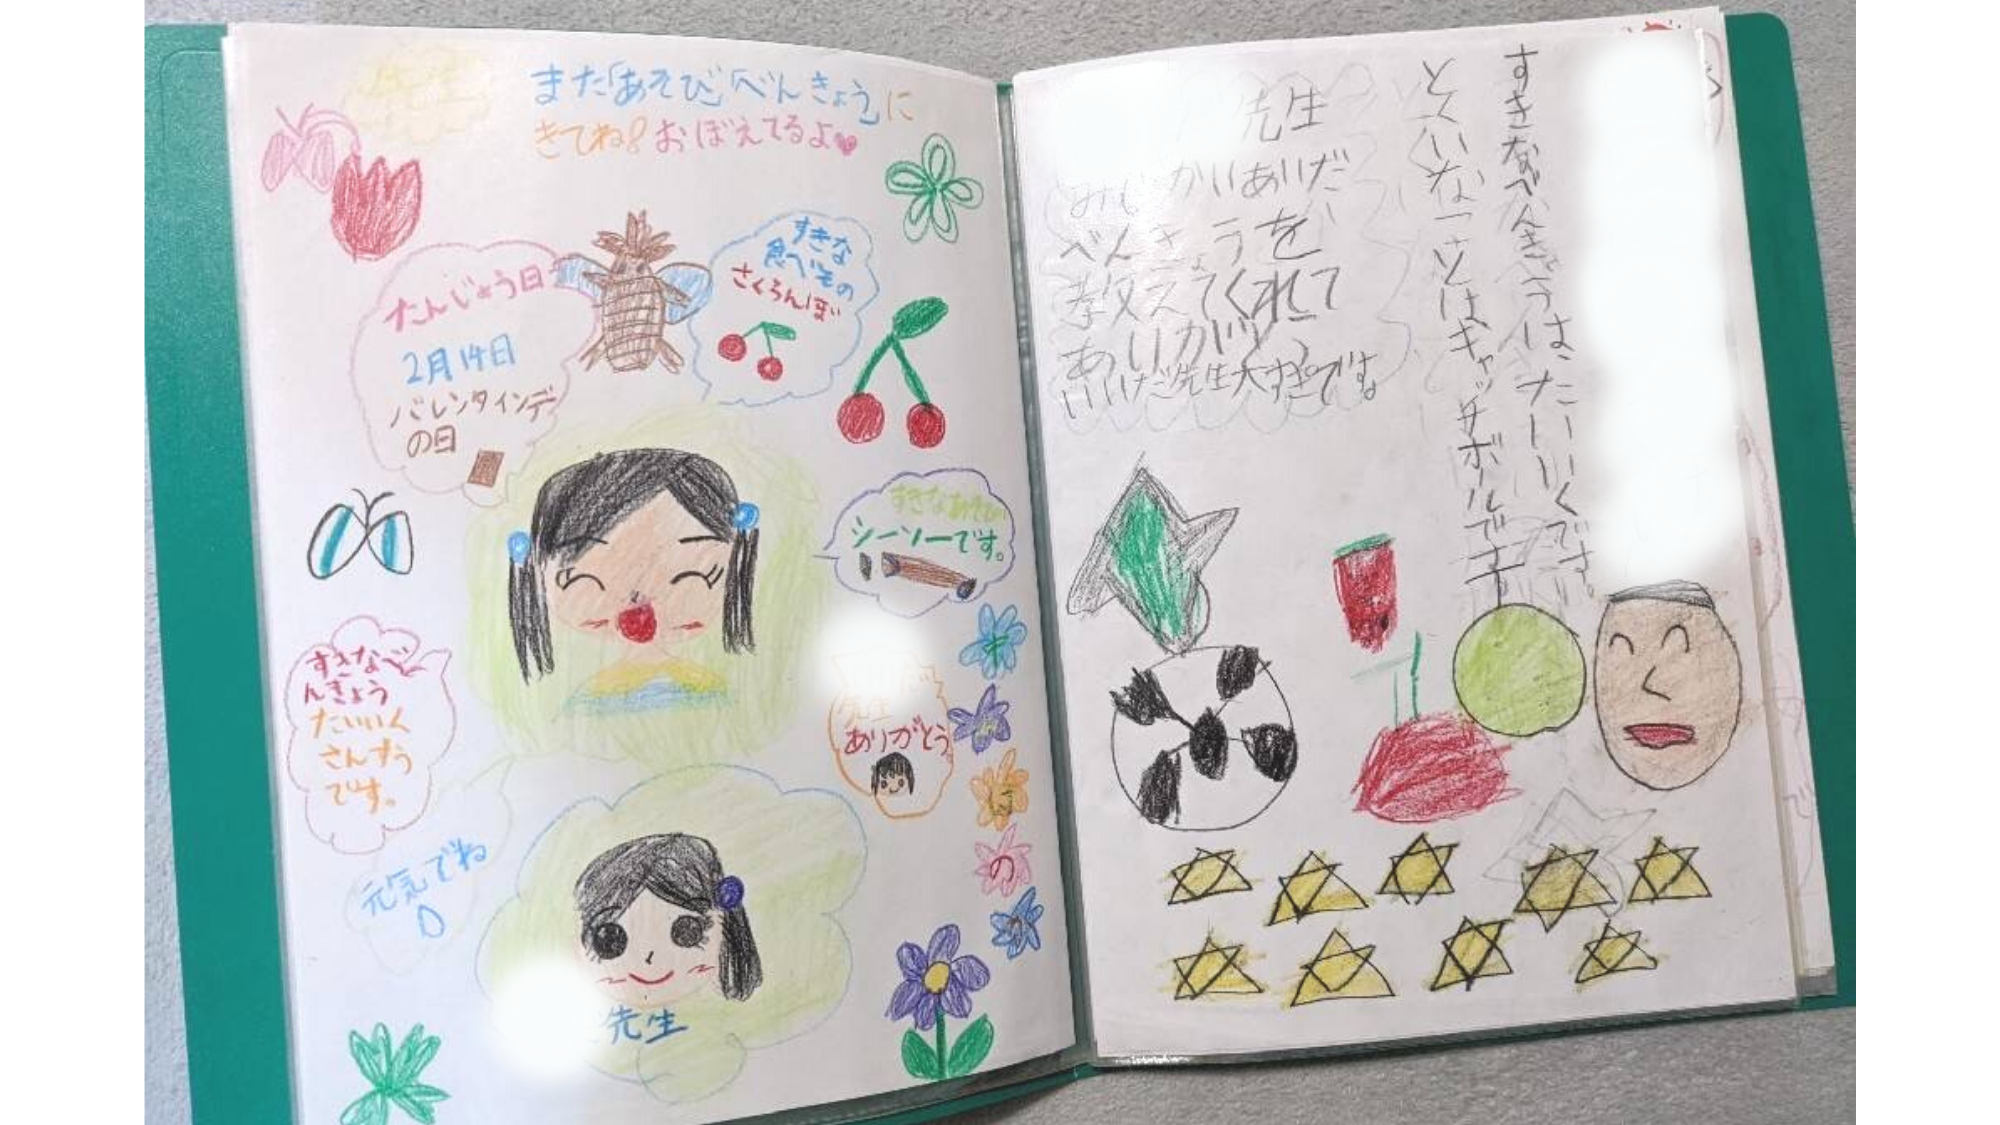 先生
また「あそび」「べんきょう」に
きてね!おぼえてるよ
たんじょう日
2月14日
バレンタインデ
の日
すきな
食べもの
さくらんぼ
すきなあそび
シーソーです。
すきなべ
んきょう
たいいく
さんすう
です。
先生
ありがとう。
元気でね
先生
先生
みじかいあいだ
べんきょうを
教えてくれて
ありがとう
先生大すきです。
すきなべんきょうは、たいいくです。
とくいなことはキャッチボールです